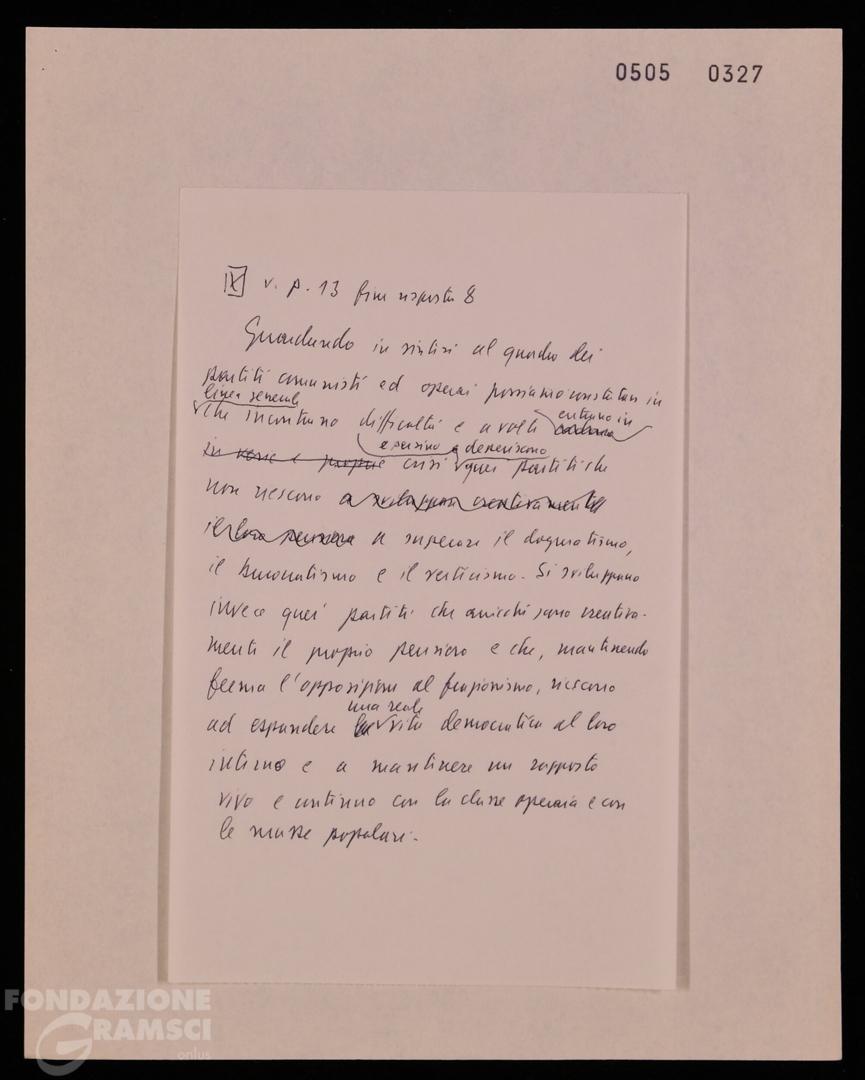 0505 0327
IX v. p. 13 fine risposta 8
Guardando in sintesi al quadro dei
partiti comunisti ed operai possiamo constatare in
linea generale
che incontrano difficoltà e a volte entrano in
e persino degenerano
in vere e proprie crisi quei partiti che
non riescono a sviluppare creativamente
il loro pensiero a superare il dogmatismo,
il burocratismo e il verticismo. Si sviluppano
invece quei partiti che arricchiscono creativa-
mente il proprio pensiero e che, mantenendo
ferma l'opposizione al frazionismo, riescono
una reale
ad espandere la vita democratica al loro
interno e a mantenere un rapporto
vivo e continuo con la classe operaia e con
le masse popolari.
FONDAZIONE
GRAMSCI
onlus